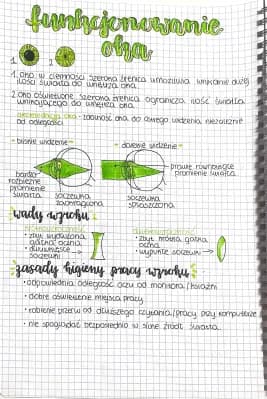 funkcjonowanie
oka
1. 2.
1. oko w ciemności szeroka źrenica umożliwia wnikanie dużej
ilości światła do wnętrza oka.
2. oko oświetlone szeroka źrenica ogranicza ilość światła
wnikającego do wnętrza oka.
akomodacja oka - zdolność oka do ostrego widzenia, niezależnie
od odległości
- bliskie widzenie - - dalekie widzenie -
bardzo
rozbieżne
promienie
światła
soczewka
zaokrąglona
soczewka
spłaszczona
prawie równoległe
promienie światła
wady wzroku
krótkowzroczność
• zbyt wydłużona
gałka oczna
• dwuwklęsłe
soczewki
dalekowzroczność
• zbyt krótka gałka
oczna
• wypukłe soczewki
zasady higieny pracy wzroku
• odpowiednia odległość oczu od monitora/książki
• dobre oświetlenie miejsca pracy
• robienie przerw od dłuższego czytania/pracy przy komputerze
• nie spoglądać bezpośrednio w silne źródł światła